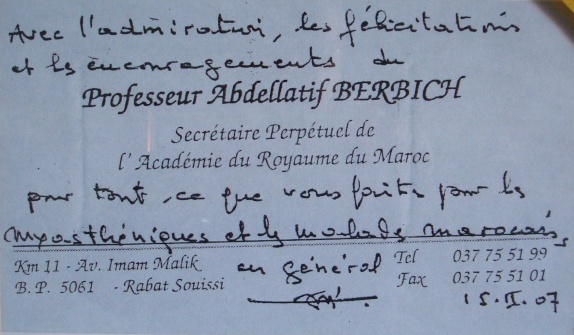 Avec l'admiration, les félicitations
et les encouragements du
Professeur Abdellatif BERBICH
Secrétaire Perpétuel de
l'Académie du Royaume du Maroc
pour tout ce que vous faites pour les
myasthéniques et les malades marocains
en général
Km 11 - Av. Imam Malik
B.P. 5061 - Rabat Souissi
Tel 037 75 51 99
Fax 037 75 51 01
15.II.07